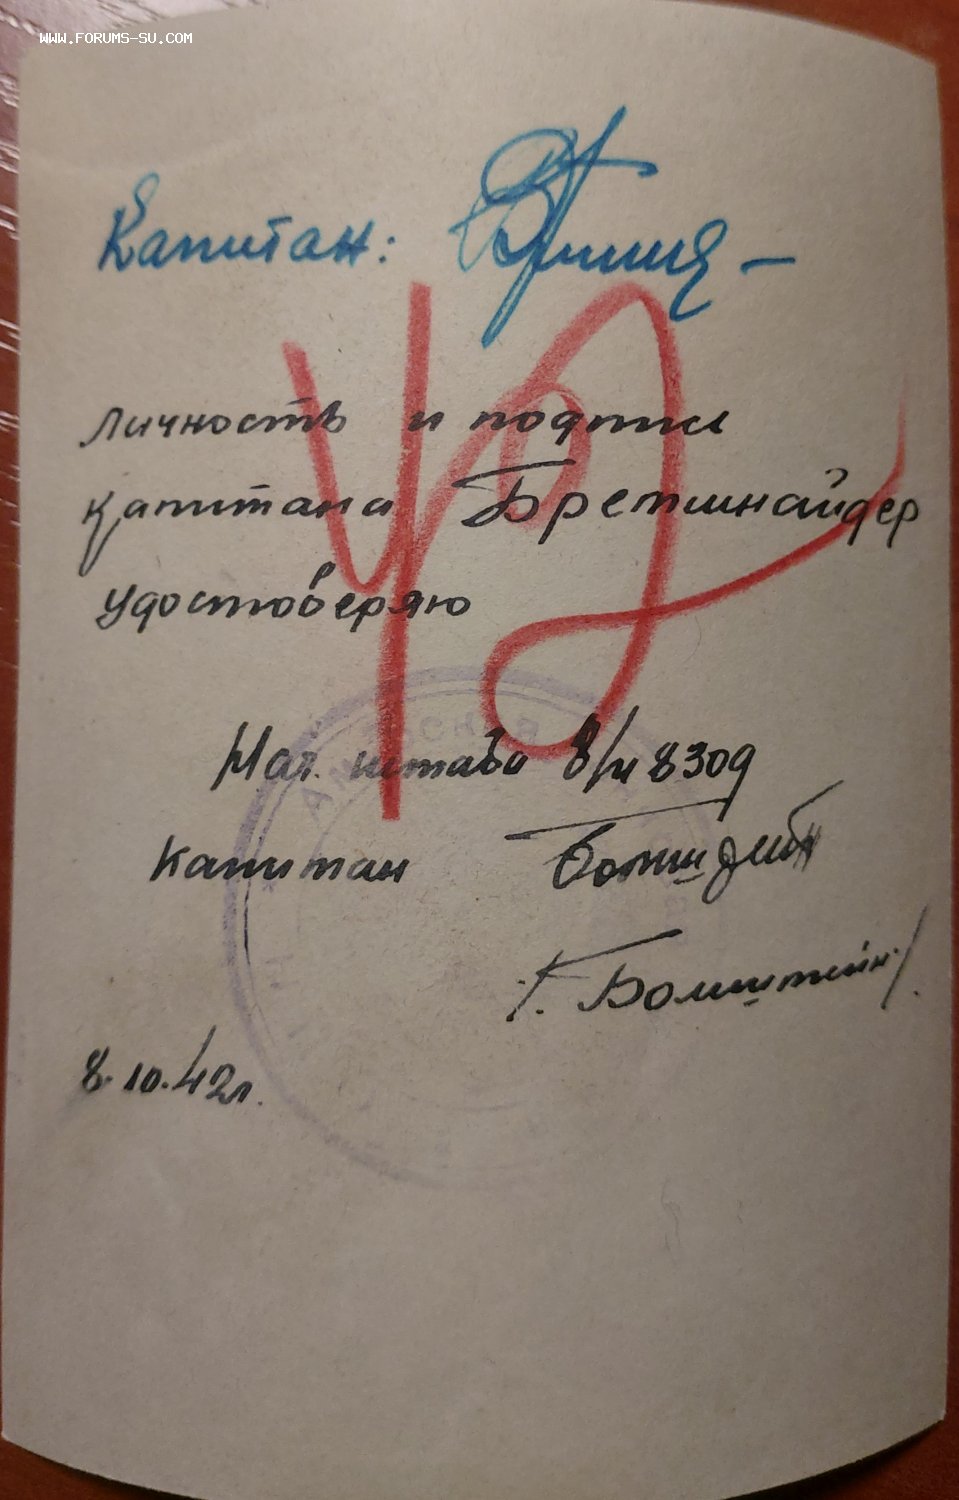 WWW.FORUMS-SU.COM
Капитан:
личность и подпись
капитана Бретшнайдер
удостоверяю
Нач. штаба в/ч 8309
капитан
/Г. Бомштейн/.
8.10.42г.